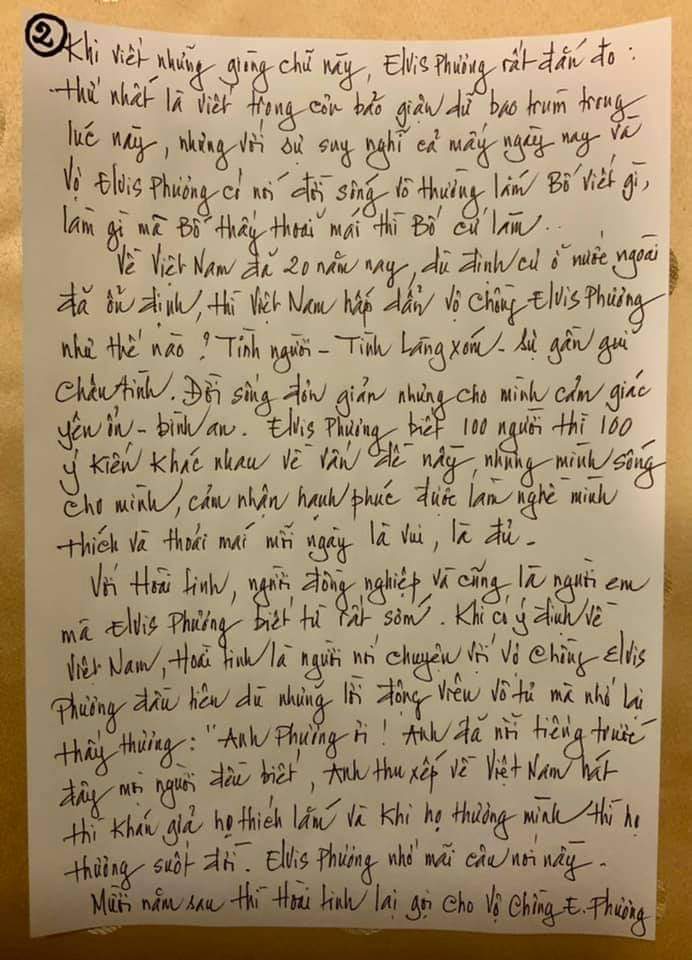 2
Khi viết những giòng chữ này, Elvis Phương rất đắn đo :
thứ nhất là viết trong cơn bảo giận dữ bao trùm trong
lúc này, nhưng với sự suy nghĩ cả mấy ngày nay và
Vợ Elvis Phương có nói đời sống vô thường lắm Bố viết gì,
làm gì mà Bố thấy thoải mái thì Bố cứ làm..
Về Việt Nam đã 20 năm nay, dù định cư ở nước ngoài
đã ổn định, thì Việt Nam hấp dẩn vợ chồng Elvis Phương
như thế nào ? Tình người - Tình Làng xóm - sự gần gũi
chân tình. Đời sống đơn giản nhưng cho mình cảm giác
yên ổn - bình an. Elvis Phương biết 100 người thì 100
ý kiến khác nhau về vấn đề này, nhưng mình sống
cho mình, cảm nhận hạnh phúc được làm nghề mình
thích và thoải mái mỗi ngày là vui, là đủ -
Với Hoài Linh, người đồng nghiệp và cũng là người em
mà Elvis Phương biết từ rất sớm. Khi có ý định về
Việt Nam, Hoài Linh là người nói chuyện với vợ chồng Elvis
Phương đầu tiên dù những lời động viên vô tư mà nhớ lại
thấy thương : "Anh Phương ơi ! Anh đã nổi tiếng trước
đây mọi người đều biết, Anh thu xếp về Việt Nam hát
thì khán giả họ thích lắm và khi họ thương mình thì họ
thương suốt đời. Elvis Phương nhớ mãi câu nói này -
Mười năm sau thì Hoài Linh lại gọi cho Vợ Chồng E. Phương